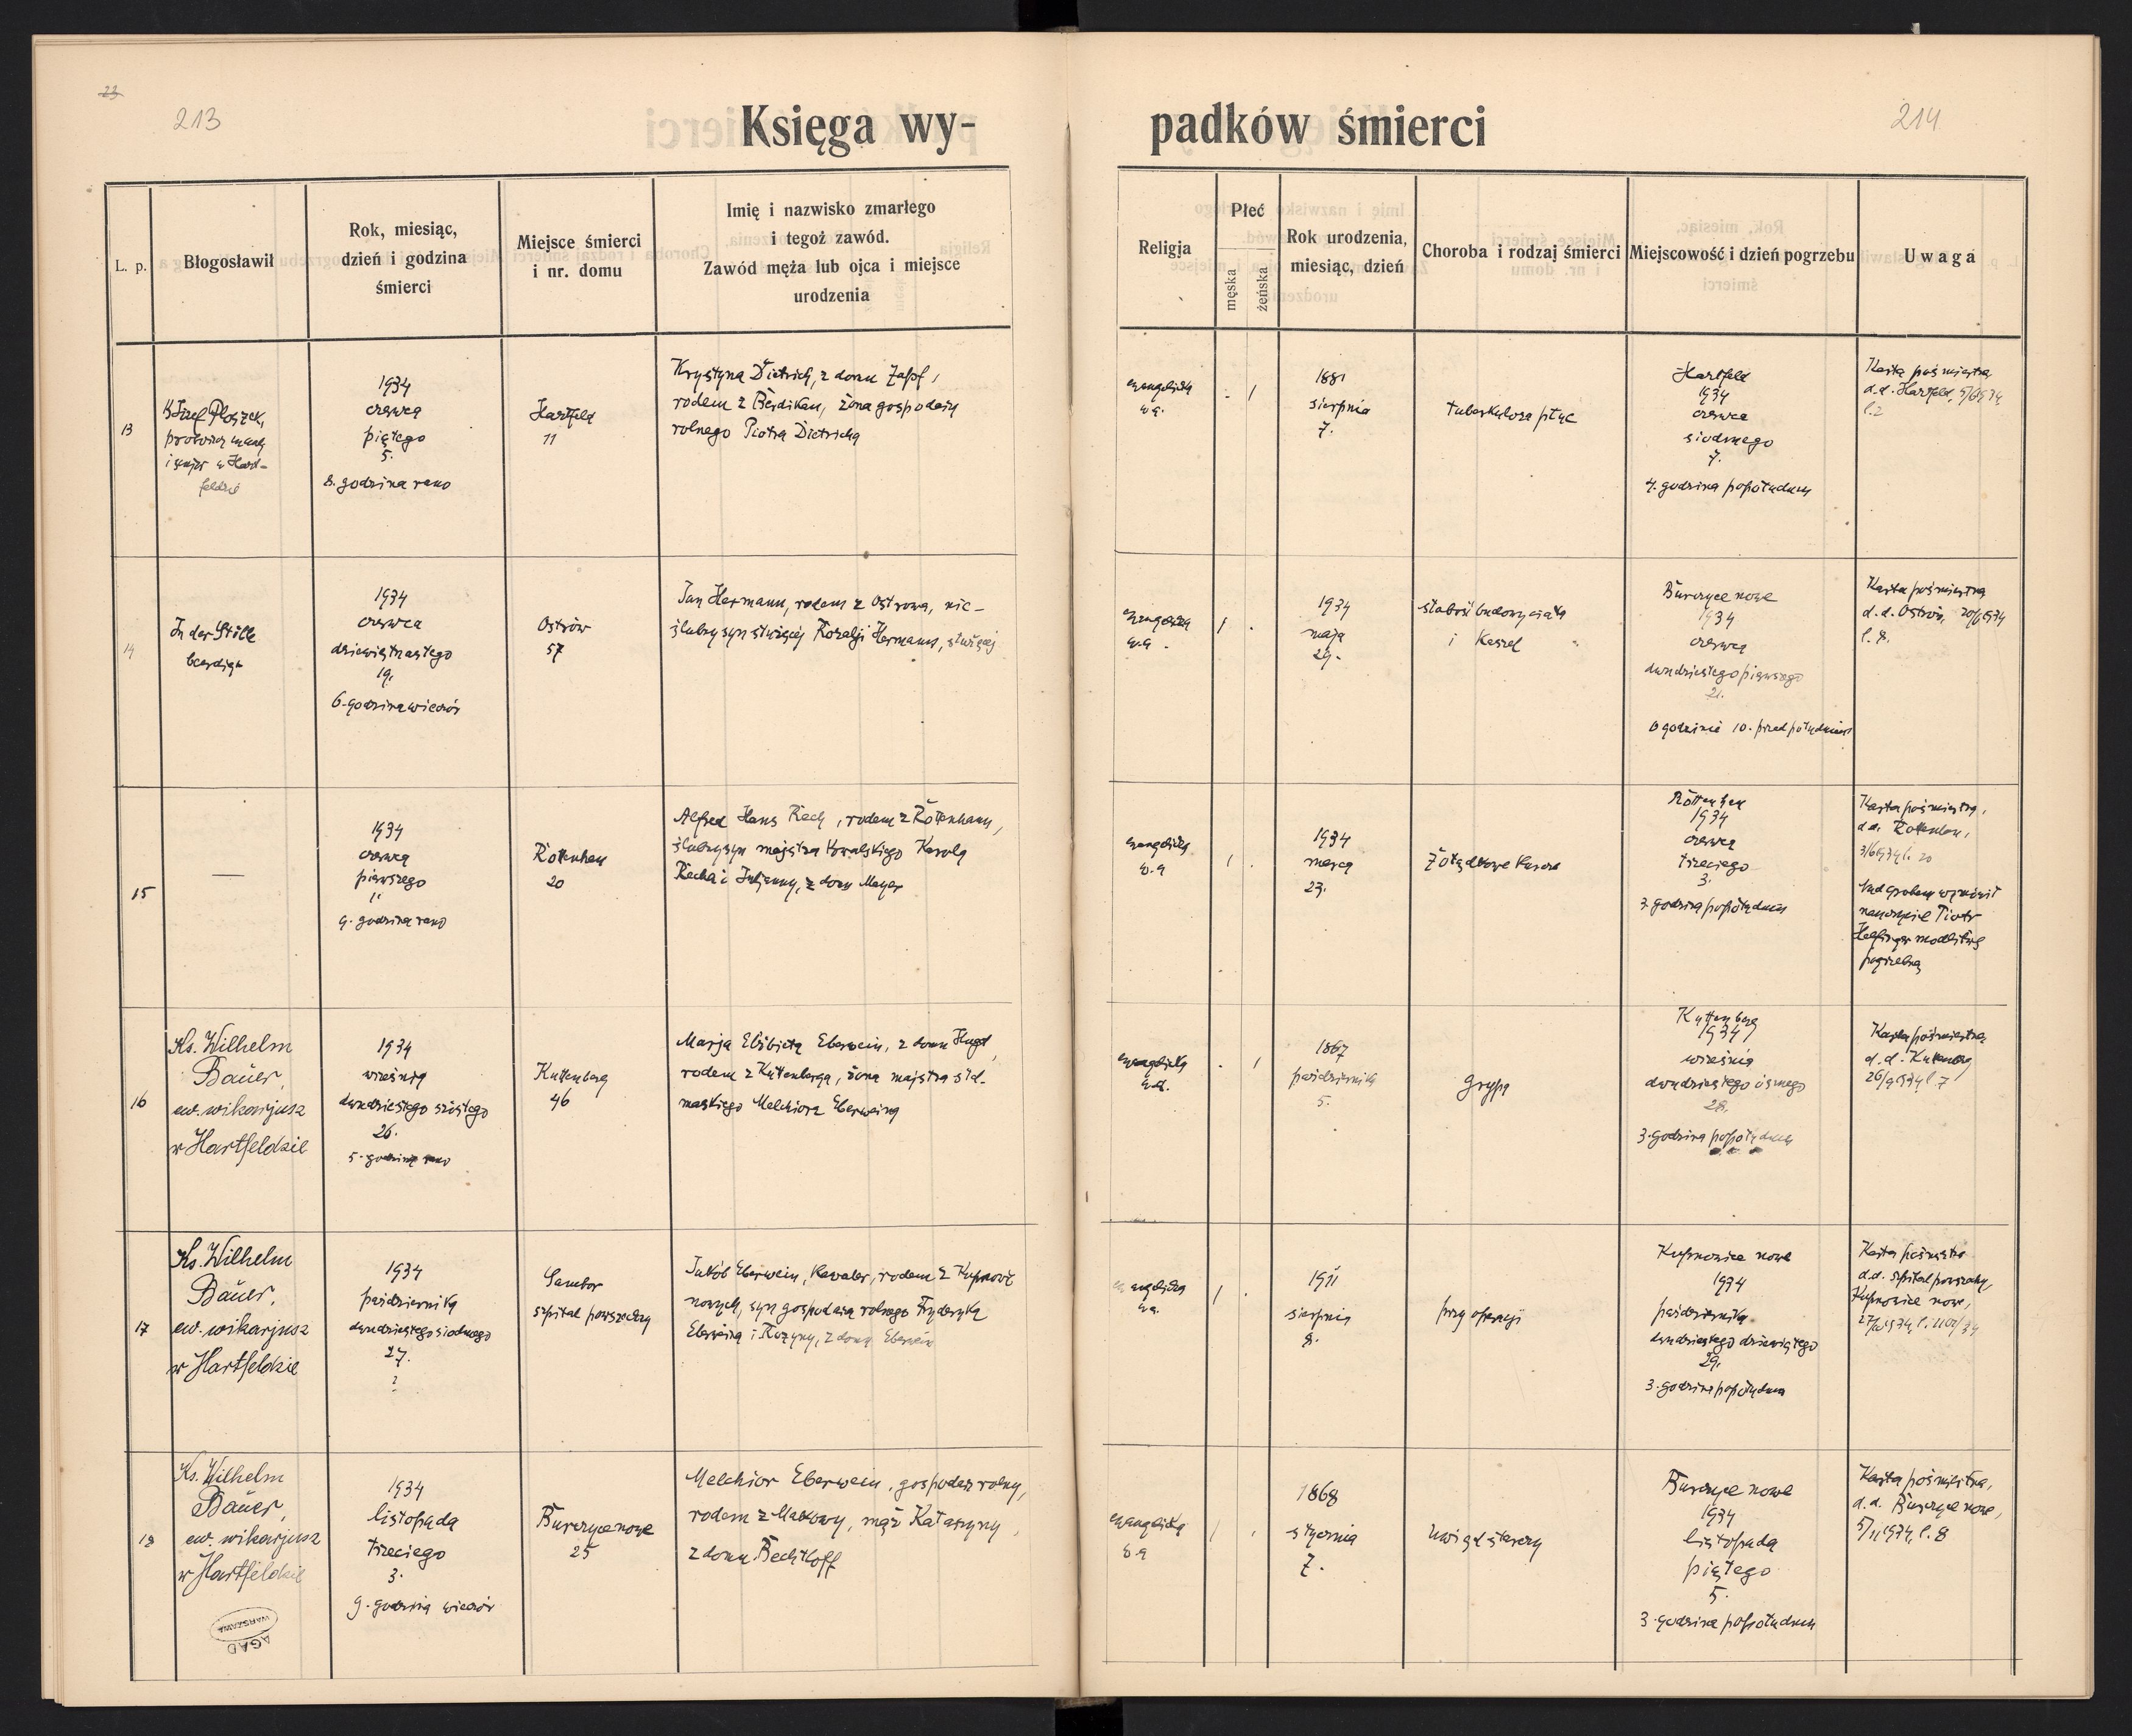 23
213
214
Księga wy-
padków śmierci
L. p.
Błogosławił
Rok, miesiąc,
dzień i godzina
śmierci
Miejsce śmierci
i nr. domu
Imię i nazwisko zmarłego
i tegoż zawód.
Zawód męża lub ojca i miejsce
urodzenia
Religja
Płeć
męska
żeńska
Rok urodzenia,
miesiąc, dzień
Choroba i rodzaj śmierci
Miejscowość i dzień pogrzebu
Uwaga
13
1934
czerwca
piątego
5.
8. godzina rano
Hartfeld
11
Krystyna Dietrich, z domu Zapf,
rodem z Berdikau, żona gospodarza
rolnego Piotra Dietricha
1881
sierpnia
7.
tuberkuloza płuc
Hartfeld
1934
czerwca
siódmego
7.
4. godzina popołudniu
Karta pośmiertna
d.d. Hartfeld, 5/6 934
l. 2
14
In der Stille
beerdigt
1934
czerwca
dziewiętnastego
19.
6. godzina wieczór
Ostrów
57
Jan Hermann, rodem z Ostrowa, nie-
ślubny syn służącej Rozalji Hermann, służącej
1934
maja
29.
słabość budowy ciała
i Kaszel
Burczyce nowe
1934
czerwca
dwudziestego pierwszego
21.
o godzinie 10. przed południem
Karta pośmiertna
d. d. Ostrów, 20/6 934
l. 8.
15
—
1934
czerwca
pierwszego
1.
9. godzina rano
Rottenhan
20
Alfred Hans Rech, rodem z Rottenhanu,
ślubny syn majstra kowalskiego Karola
Recha i Juljanny, z domu Mayer
1934
marca
23.
Żołądkowe kurcze
Rottenhan
1934
czerwca
trzeciego
3.
3. godzina popołudniu
Karta pośmiertna,
d.d. Rottenhan,
3/6 934 l. 20
Nad grobem wymówił
nauczyciel Piotr
modlitwę
pogrzebną
16
Ks. Wilhelm
Bauer,
ew. wikarjusz
w Hartfeldzie
1934
września
dwudziestego szóstego
26.
5. godzina rano
Kuttenberg
46
Marja Elżbieta Eberwein, z domu
rodem z Kuttenberga, żona majstra stel-
maskiego Melchiora Eberweina
1867
października
5.
grypa
Kuttenberg
1934
września
dwudziestego ósmego
28.
3. godzina popołudniu
Karta pośmiertna
d. d. Kuttenberg
26/9 934 l. 7
17
Ks. Wilhelm
Bauer,
ew. wikarjusz
w Hartfeldzie
1934
października
dwudziestego siódmego
27.
?
Sambor
szpital powszechny
Jakób Eberwein, Kawaler, rodem z Kupnowic
nowych, syn gospodarza rolnego Fryderyka
Eberweina i Rozyny, z domu Eberwein
1911
sierpnia
8.
przy operacji
Kupnowice nowe
1934
października
dwudziestego dziewiątego
29.
3. godzina popołudniu
Karta pośmiertna
d.d. szpital powszechny,
Kupnowice nowe,
18
Ks. Wilhelm
Bauer,
ew. wikarjusz
w Hartfeldzie
1934
listopada
trzeciego
3.
9. godzina wieczór
Burczyce nowe
25
Melchior Eberwein, gospodarz rolny,
rodem z Makowy, mąż Katarzyny,
z domu Bechtloff
1868
stycznia
7.
Uwiąd starczy
Burczyce nowe
1934
listopada
piątego
5.
3. godzina popołudniu
Karta pośmiertna,
d.d. Burczyce nowe,
5/11 1934, l. 8
AGAD
WARSZAWA